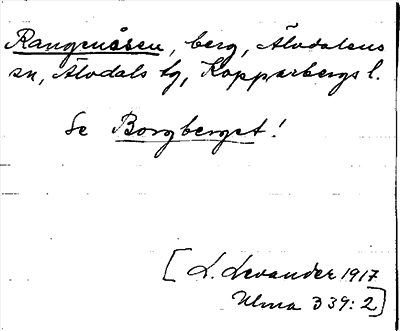 Rangenåsen, berg, Älvdalens
sn, Älvdals tg, Kopparbergs l.
Se Borgberget!
[L. Levander 1917
Ulma D 39:2]